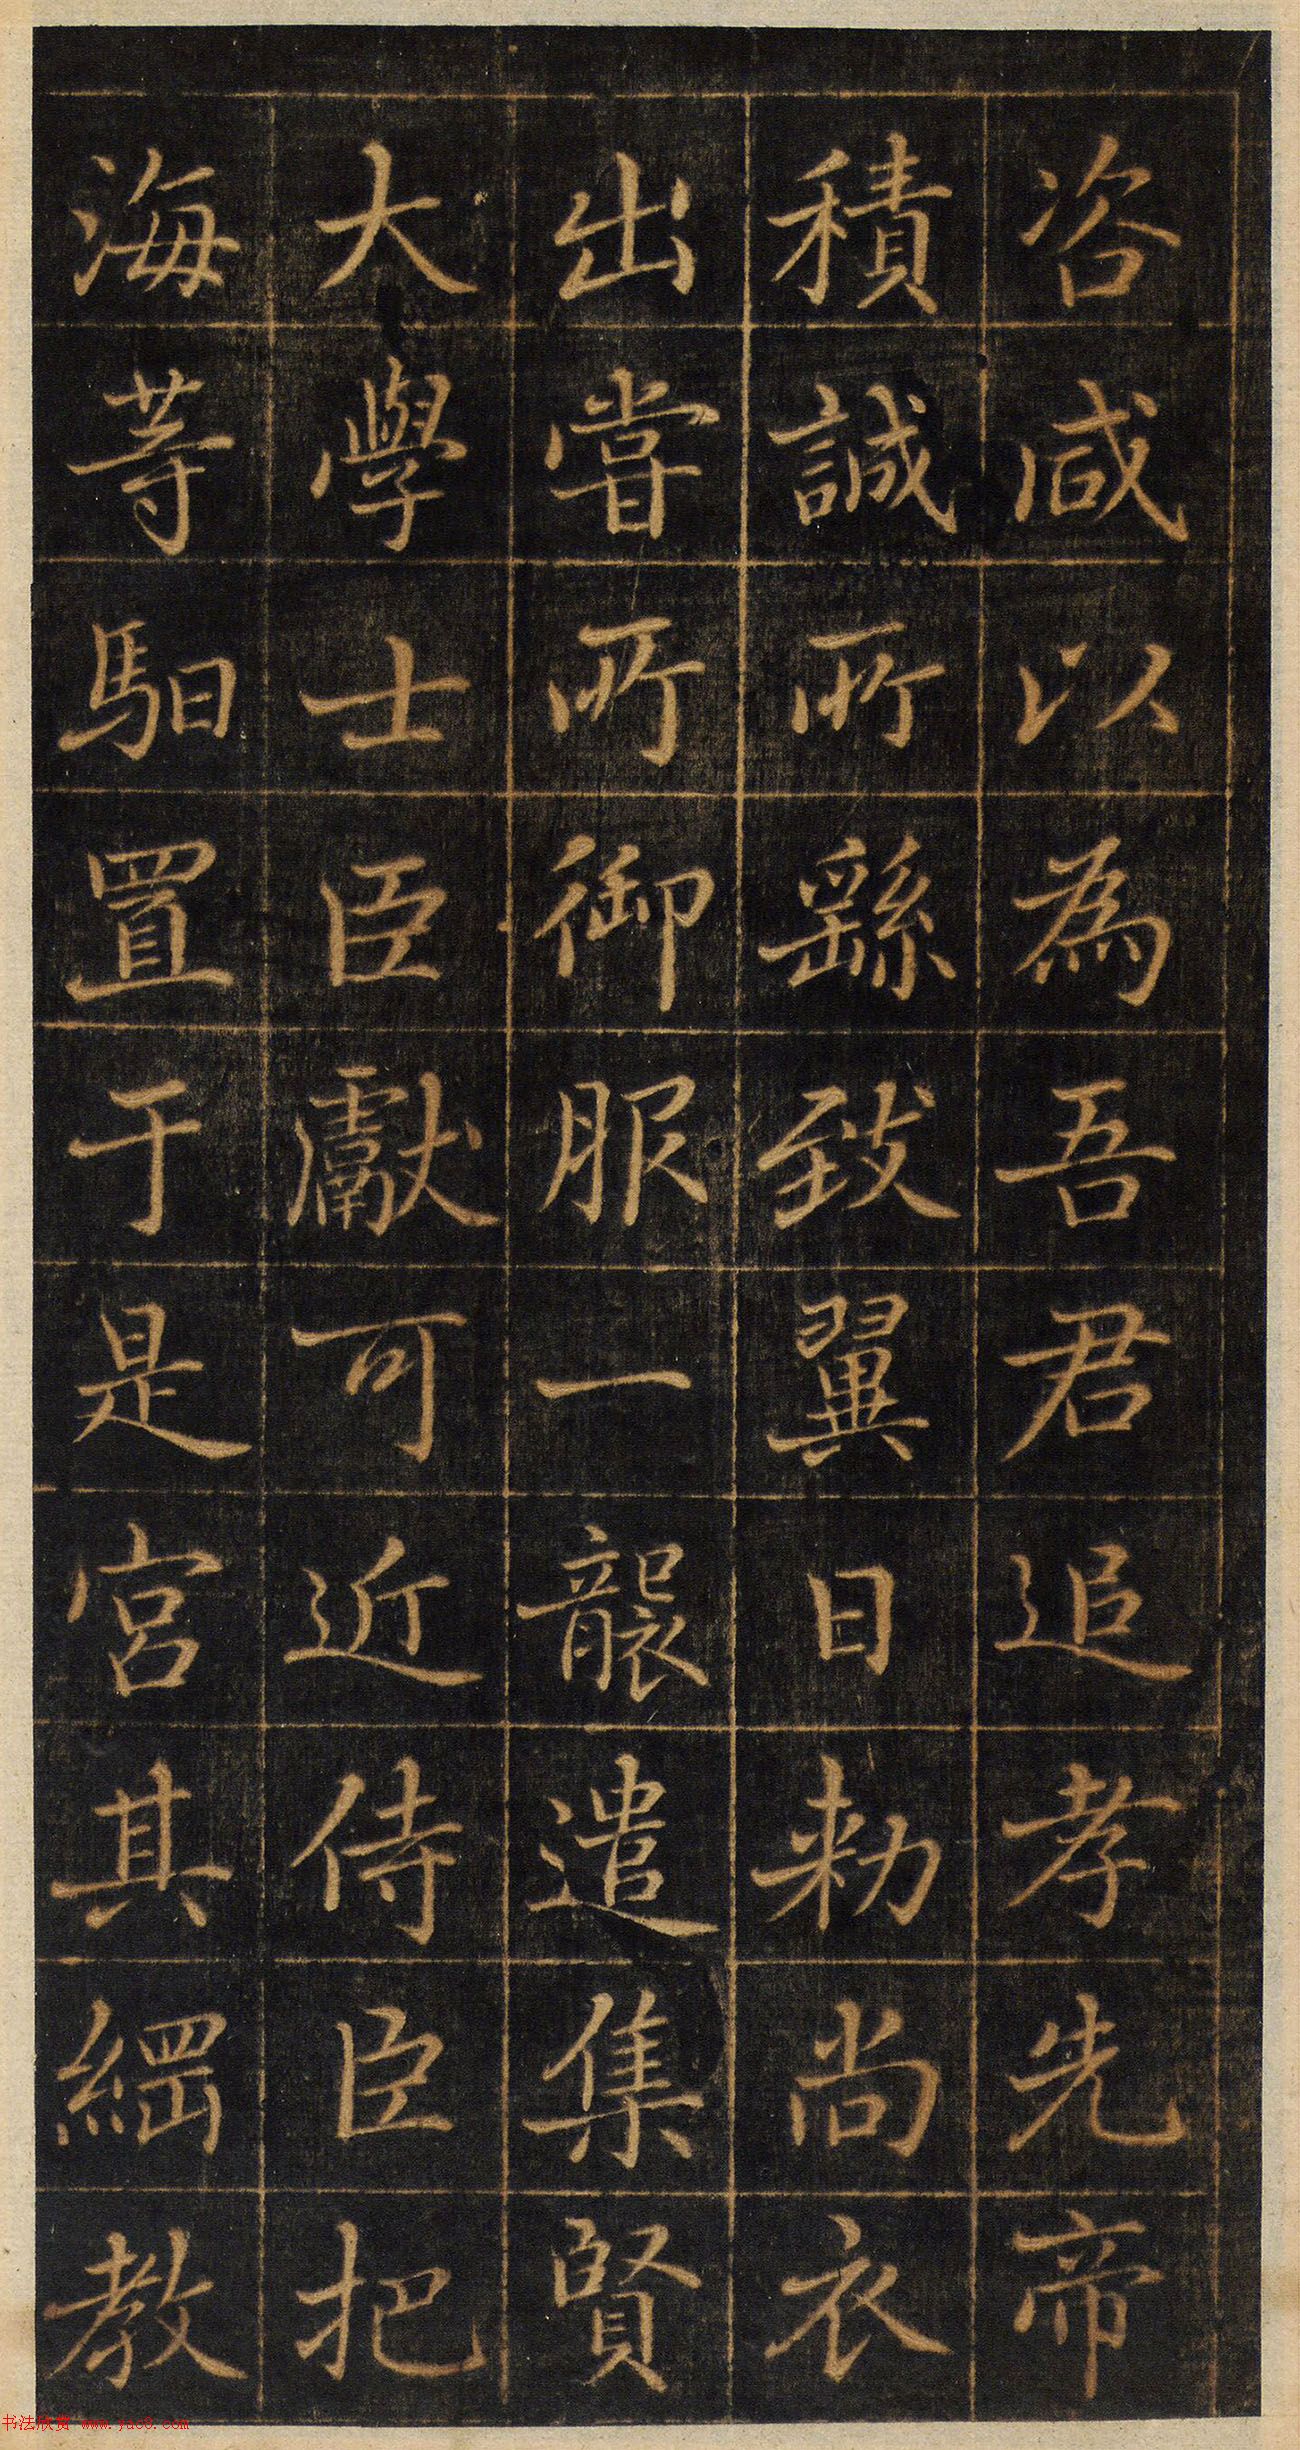 咨咸以為吾君追孝先帝
積誠所繇致翼日勑尚衣
出嘗所御服一襲遣集賢
大學士臣獻可近侍臣把
海等馹置于是宮其綱教
书法欣赏 www.yac8.com